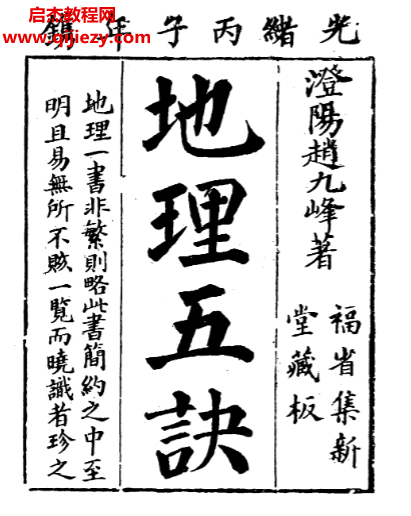 启杰教程网
www.qijiezy.com
光緒丙子年鐫
澄陽趙九峰著
福省集新
堂藏板
地理五訣
地理一書非繁則略此書簡約之中至
明且易無所不賅一覽而曉識者珍之